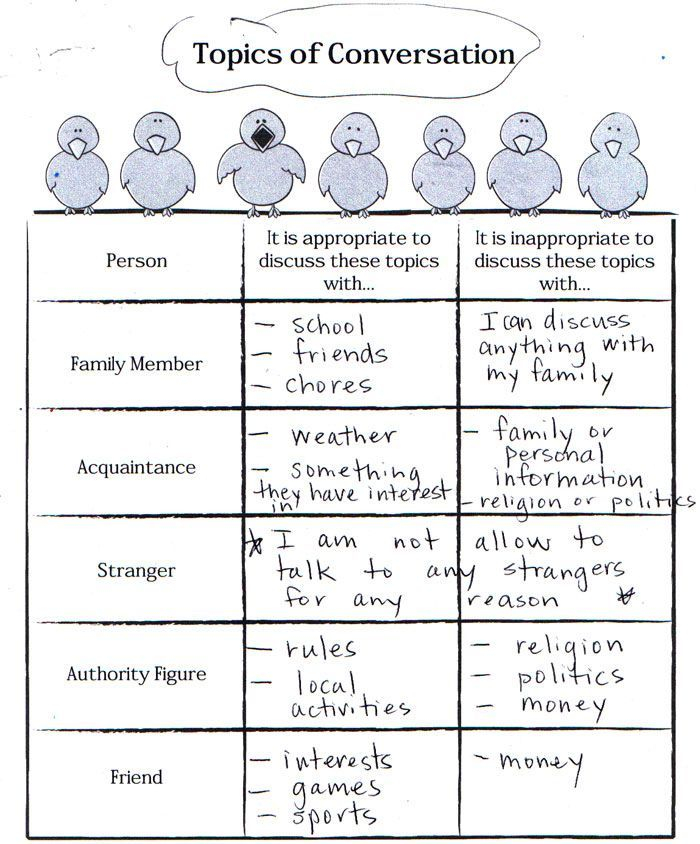 Topics of Conversation
Person
It is appropriate to
discuss these topics
with...
It is inappropriate to
discuss these topics
with...
Family Member
- school
- friends
- chores
I can discuss
anything with
my family
Acquaintance
- weather
- something
they have interest
in
- family or
personal
information
- religion or politics
Stranger
* I am not allow to
talk to any strangers
for any reason *
Authority Figure
- rules
- local
activities
- religion
- politics
- money
Friend
- interests
- games
- sports
- money